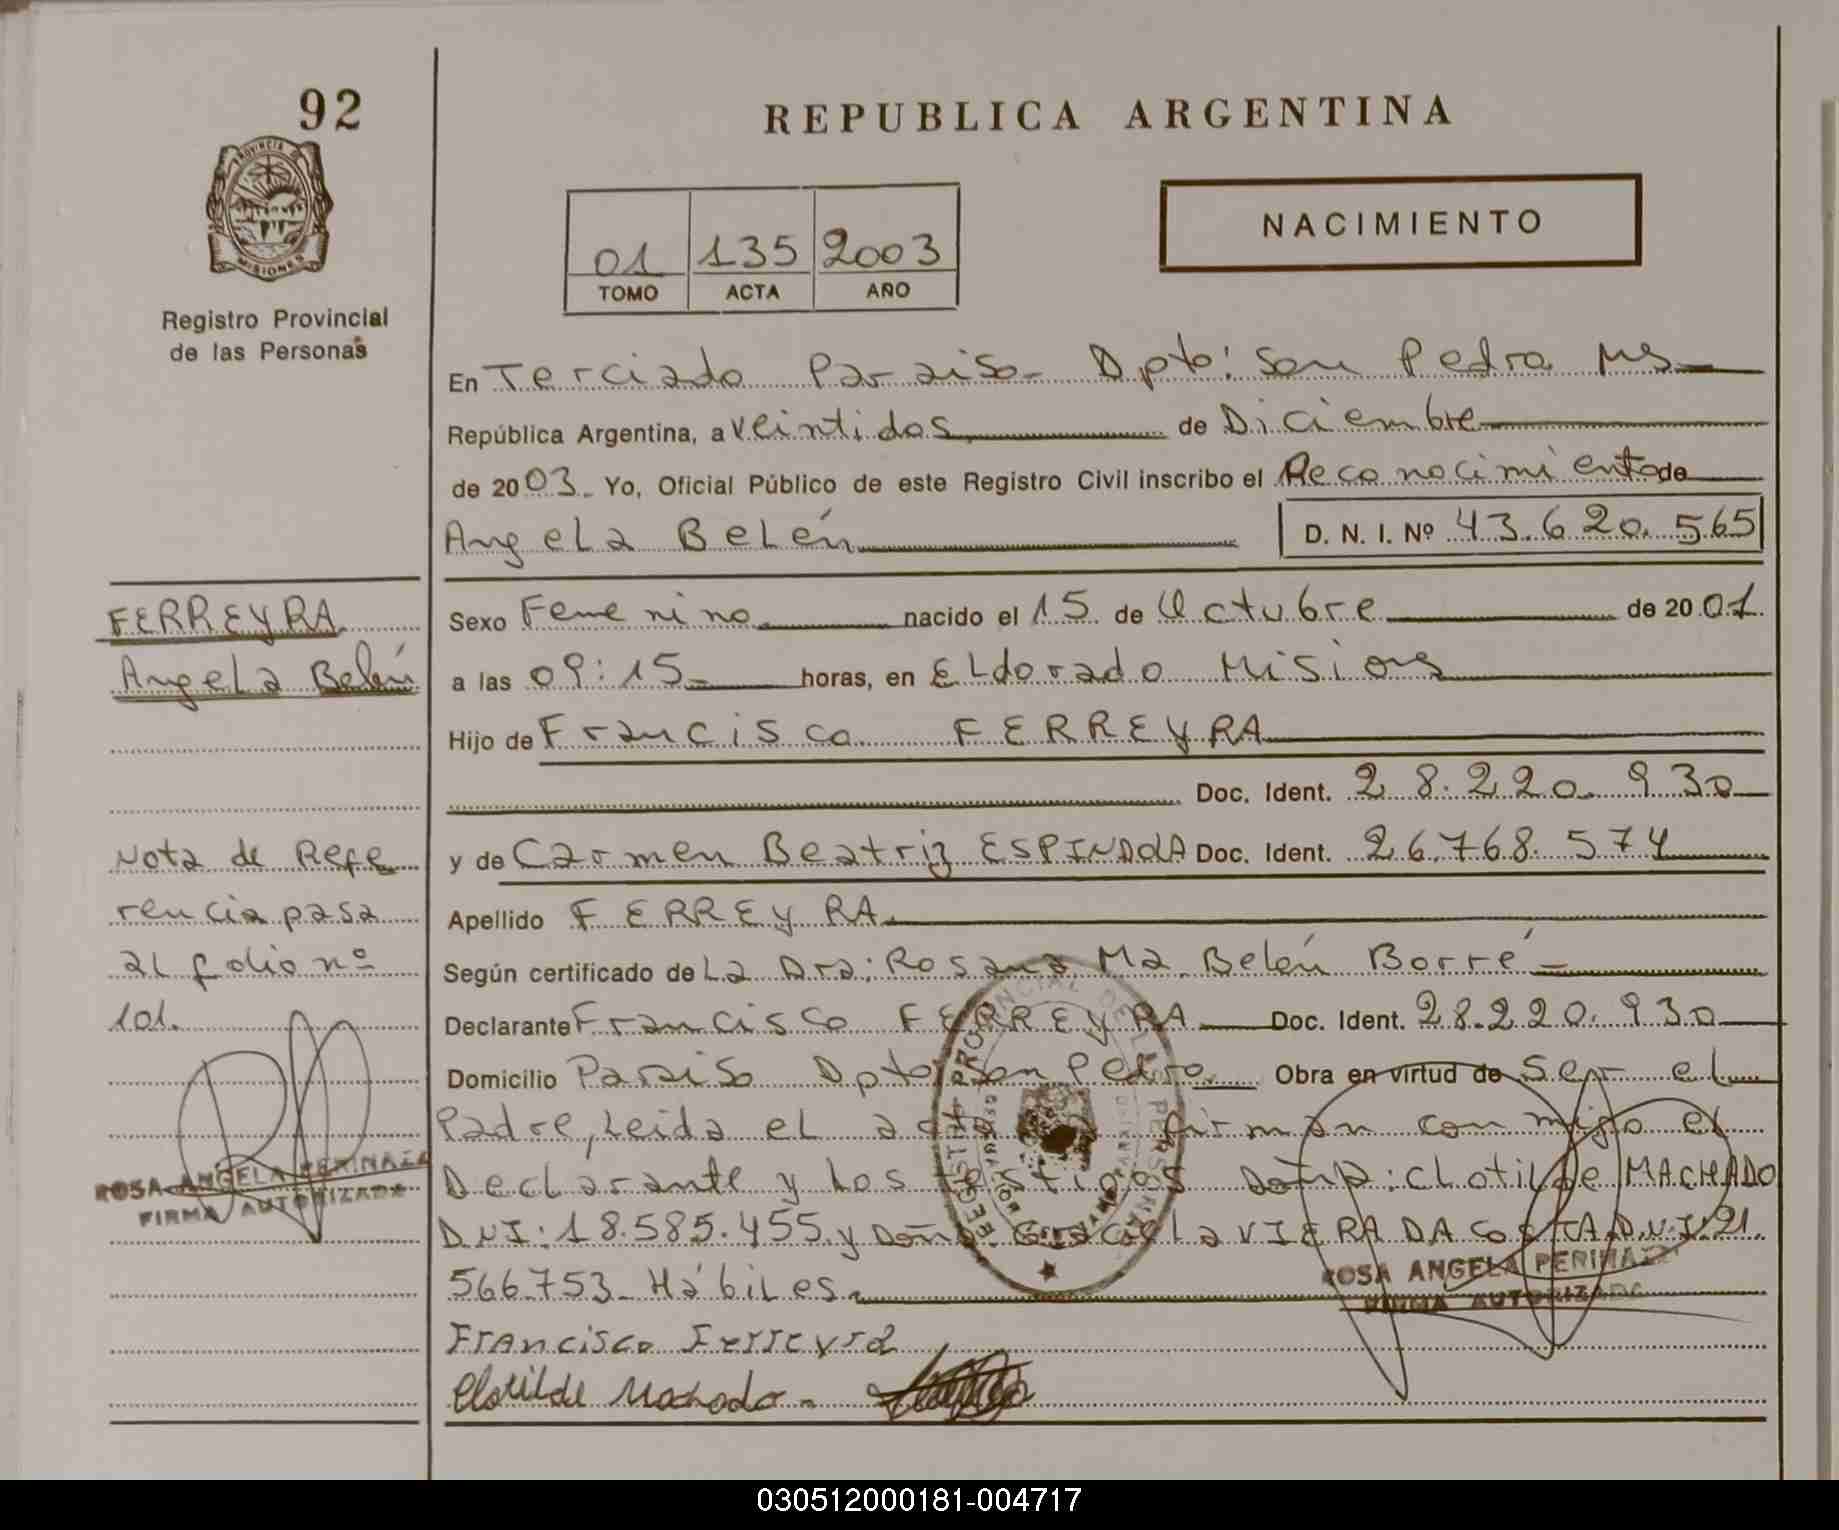 92
PROVINCIA DE
MISIONES
Registro Provincial
de las Personas
REPUBLICA ARGENTINA
01 135 2003
TOMO ACTA AÑO
NACIMIENTO
En Terciado Paraiso - Dpto: San Pedro Ms
República Argentina, a veintidos de Diciembre
de 2003. Yo, Oficial Público de este Registro Civil inscribo el Reconocimiento de
Angela Belén D. N. I. Nº 43.620.565
FERREYRA
Angela Belén
Sexo Femenino nacido el 15 de Octubre de 2001.
a las 09:15 horas, en Eldorado Misiones
Hijo de Francisco FERREYRA
Doc. Ident. 28.220.930
y de Carmen Beatriz ESPINDOLA Doc. Ident. 26.768.574
Apellido FERREYRA
Según certificado de La Dra: Rosana Ma. Belén Borré
Declarante Francisco FERREYRA Doc. Ident. 28.220.930
Domicilio Paraiso Dpto San Pedro Obra en virtud de ser el
Padre, Leida el firman con migo el
Declarante y Los testigos Doña: Clotilde MACHADO
DNI: 18.585.455 y Doña Graciela VIERA DA COSTA D.N.I: 21.
566.753 - Hábiles
Francisco Ferreyra
Clotilde Machado
Nota de Refe
rencia pasa
al folio nº
101.
ROSA ANGELA PERINAZZ
FIRMA AUTORIZADA
ROSA ANGELA PERINAZZ
FIRMA AUTORIZADA
030512000181-004717